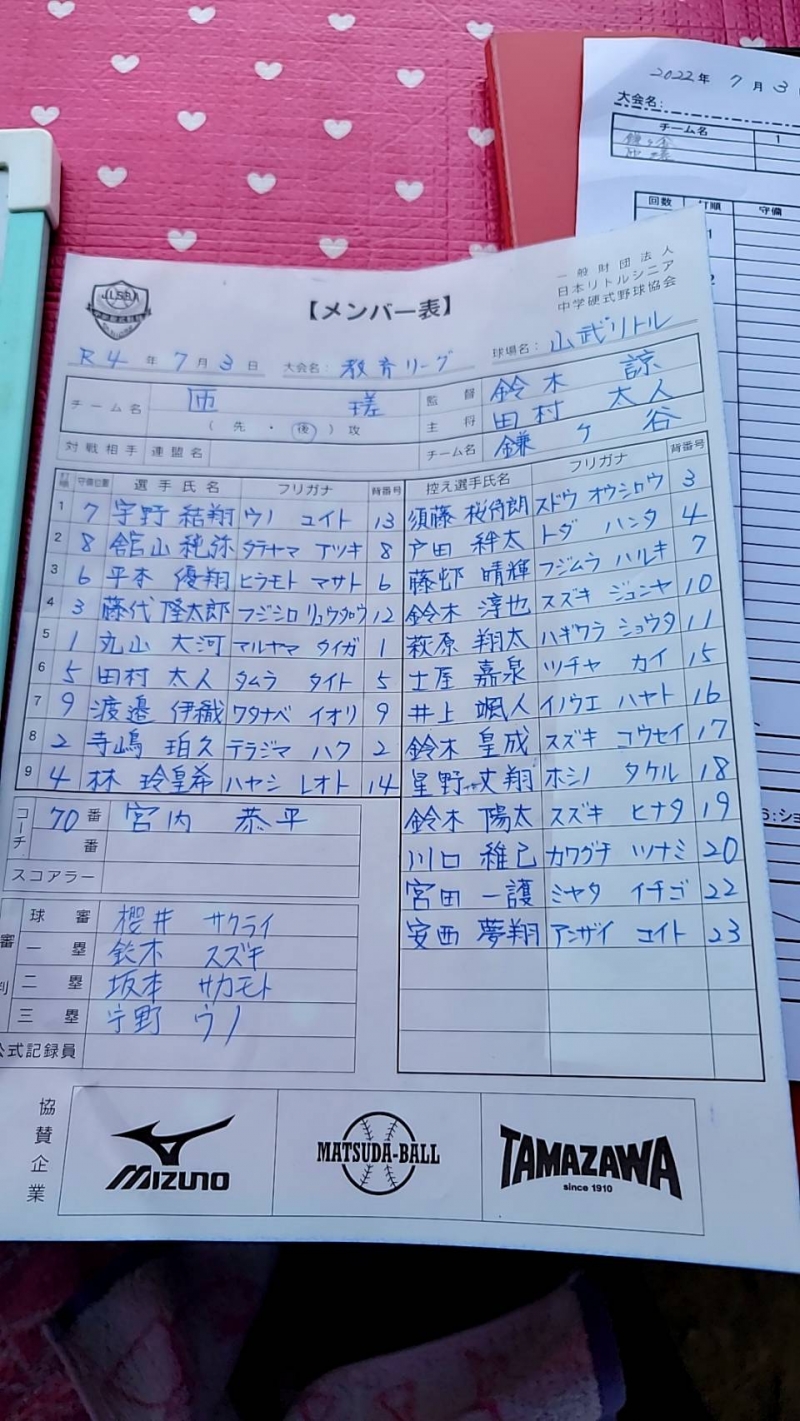 2022年 7月3日
大会名:
チーム名 1
鎌ヶ谷
匝瑳
回数 打順 守備
1
【メンバー表】
一般財団法人
日本リトルシニア
中学硬式野球協会
R4年7月3日 大会名:教育リーグ 球場名:山武リトル
チーム名 匝瑳 監督 鈴木 諒
(先・後)攻 主将 田村 太人
対戦相手 連盟名 チーム名 鎌ヶ谷
打順 守備位置 選手氏名 フリガナ 背番号 控え選手氏名 フリガナ 背番号
1 7 宇野 結翔 ウノ ユイト 13 須藤 桜侍朗 スドウ オウシロウ 3
2 8 舘山 純弥 タテヤマ アツキ 8 戸田 絆太 トダ ハンタ 4
3 6 平本 優翔 ヒラモト マサト 6 藤邨 晴輝 フジムラ ハルキ 7
4 3 藤代 隆太郎 フジシロ リュウタロウ 12 鈴木 淳也 スズキ ジュンヤ 10
5 1 丸山 大河 マルヤマ タイガ 1 萩原 翔太 ハギワラ ショウタ 11
6 5 田村 太人 タムラ タイト 5 土屋 嘉泉 ツチヤ カイ 15
7 9 渡邉 伊織 ワタナベ イオリ 9 井上 颯人 イノウエ ハヤト 16
8 2 寺嶋 珀久 テラジマ ハク 2 鈴木 皇成 スズキ コウセイ 17
9 4 林 玲皇希 ハヤシ レオト 14 星野 丈翔 ホシノ タケル 18
コーチ 70番 宮内 恭平 鈴木 陽太 スズキ ヒナタ 19
番 川口 稚己 カワグチ ツナミ 20
スコアラー 宮田 一護 ミヤタ イチゴ 22
安西 夢翔 アンザイ ユイト 23
審判 球審 櫻井 サクライ
一塁 鈴木 スズキ
二塁 坂本 サカモト
三塁 宇野 ウノ
公式記録員
協賛企業
MIZUNO
MATSUDA-BALL
TAMAZAWA
since 1910